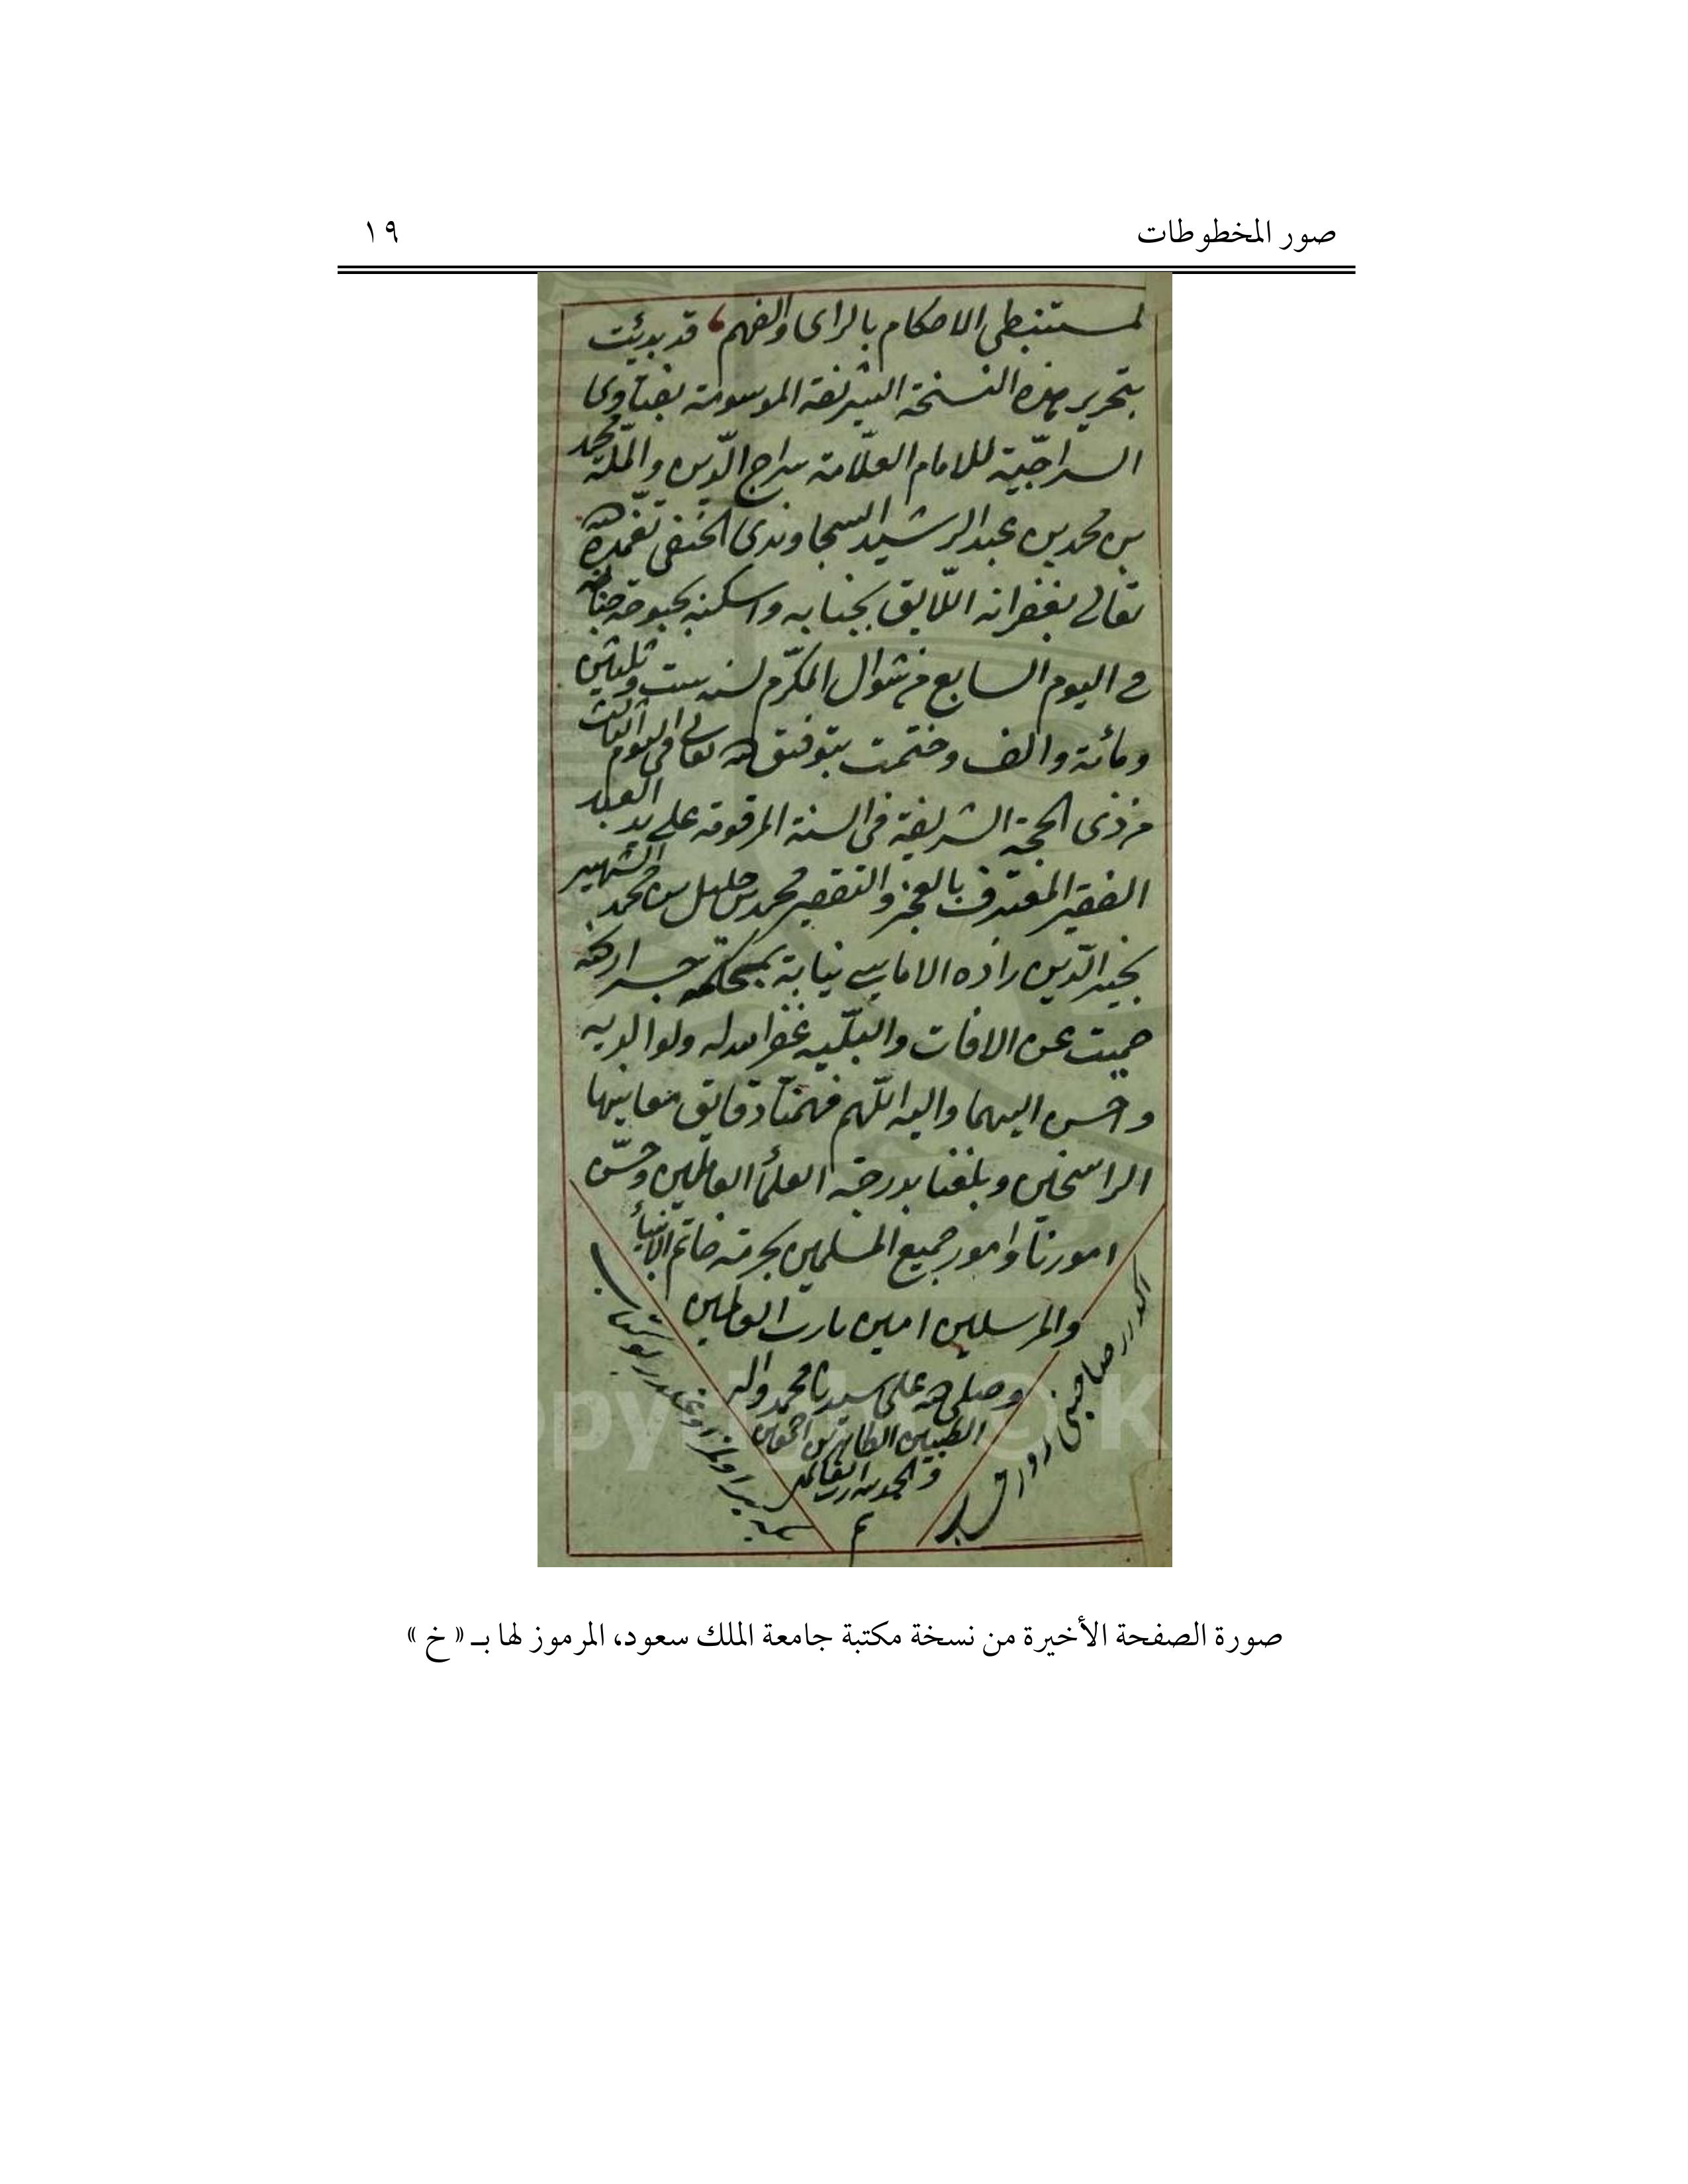 صور المخطوطات ١٩
لمستنبطى الاحكام بالراى والفهم قد بدئت
بتحرير هذه النسخة الشريفة الموسومة بفتاوى
السراجّية للامام العلّامة سراج الدّين والملّة محمد
بن محمد بن عبد الرشيد السجاوندى الحنفى تغمده الله
تعالى بغفرانه اللايق بجنابه واسكنه بحبوحة جنانه
فى اليوم السابع من شوال المكرّم لسنه ست وثلثين
ومائة والف وختمت بتوفيق الله تعالى فى اليوم الثالث
من ذى الحجة الشريفة فى السنة المرقومة على يد العبد
الفقير المعترف بالعجز والتقصير محمد بن خليل بن محمد الشهير
بخير الدّين زاده الاماسى نيابة بمحكمة
حميت عن الافات والبلّيه غفر الله له ولوالديه
واحسن اليهما واليه اللّهم فهمنّا دقايق معانيها
الراسخين وبلغنا بدرجة العلمأ العاملين وحسّن
امورنا وامور جميع المسلمين بحرمة خاتم الانبيأ
والمرسلين امين يارب العالمين
وصلى الله على سيدنا محمد واله
الطيبين الطاهرين اجمعين
والحمد لله رب العالمين
م
صورة الصفحة الأخيرة من نسخة مكتبة جامعة الملك سعود، المرموز لها بـ « خ »